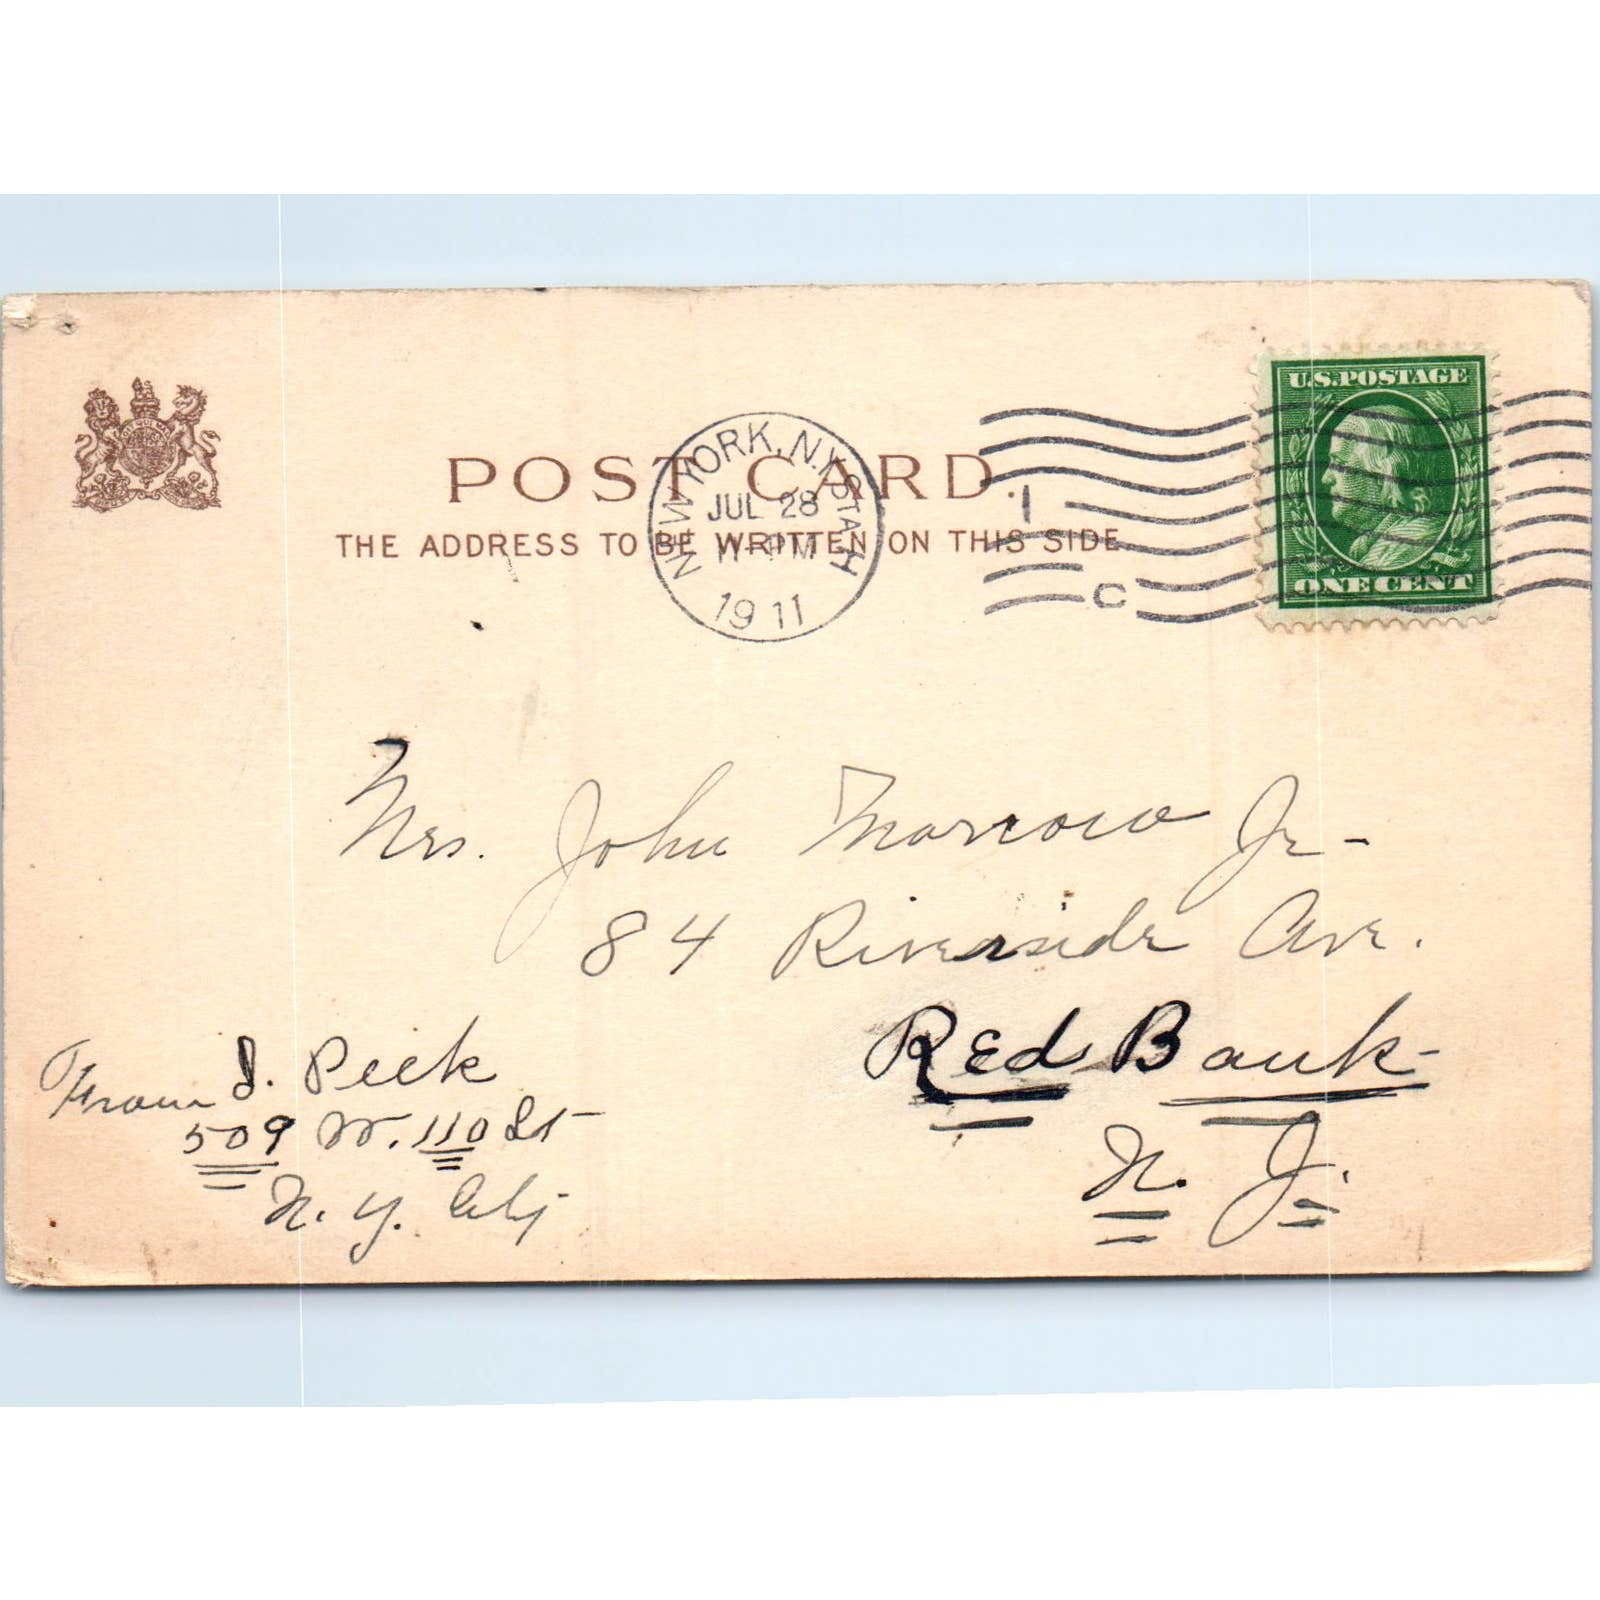 POST CARD.
THE ADDRESS TO BE WRITTEN ON THIS SIDE.
NEW YORK, N.Y. STA. H
JUL 28
11-PM
1911
1
C
U.S. POSTAGE
ONE CENT
Mrs. John Morrow Jr-
84 Riverside Ave.
Red Bank-
N. J.
From J. Peek
509 W. 110 St-
N. Y. City-